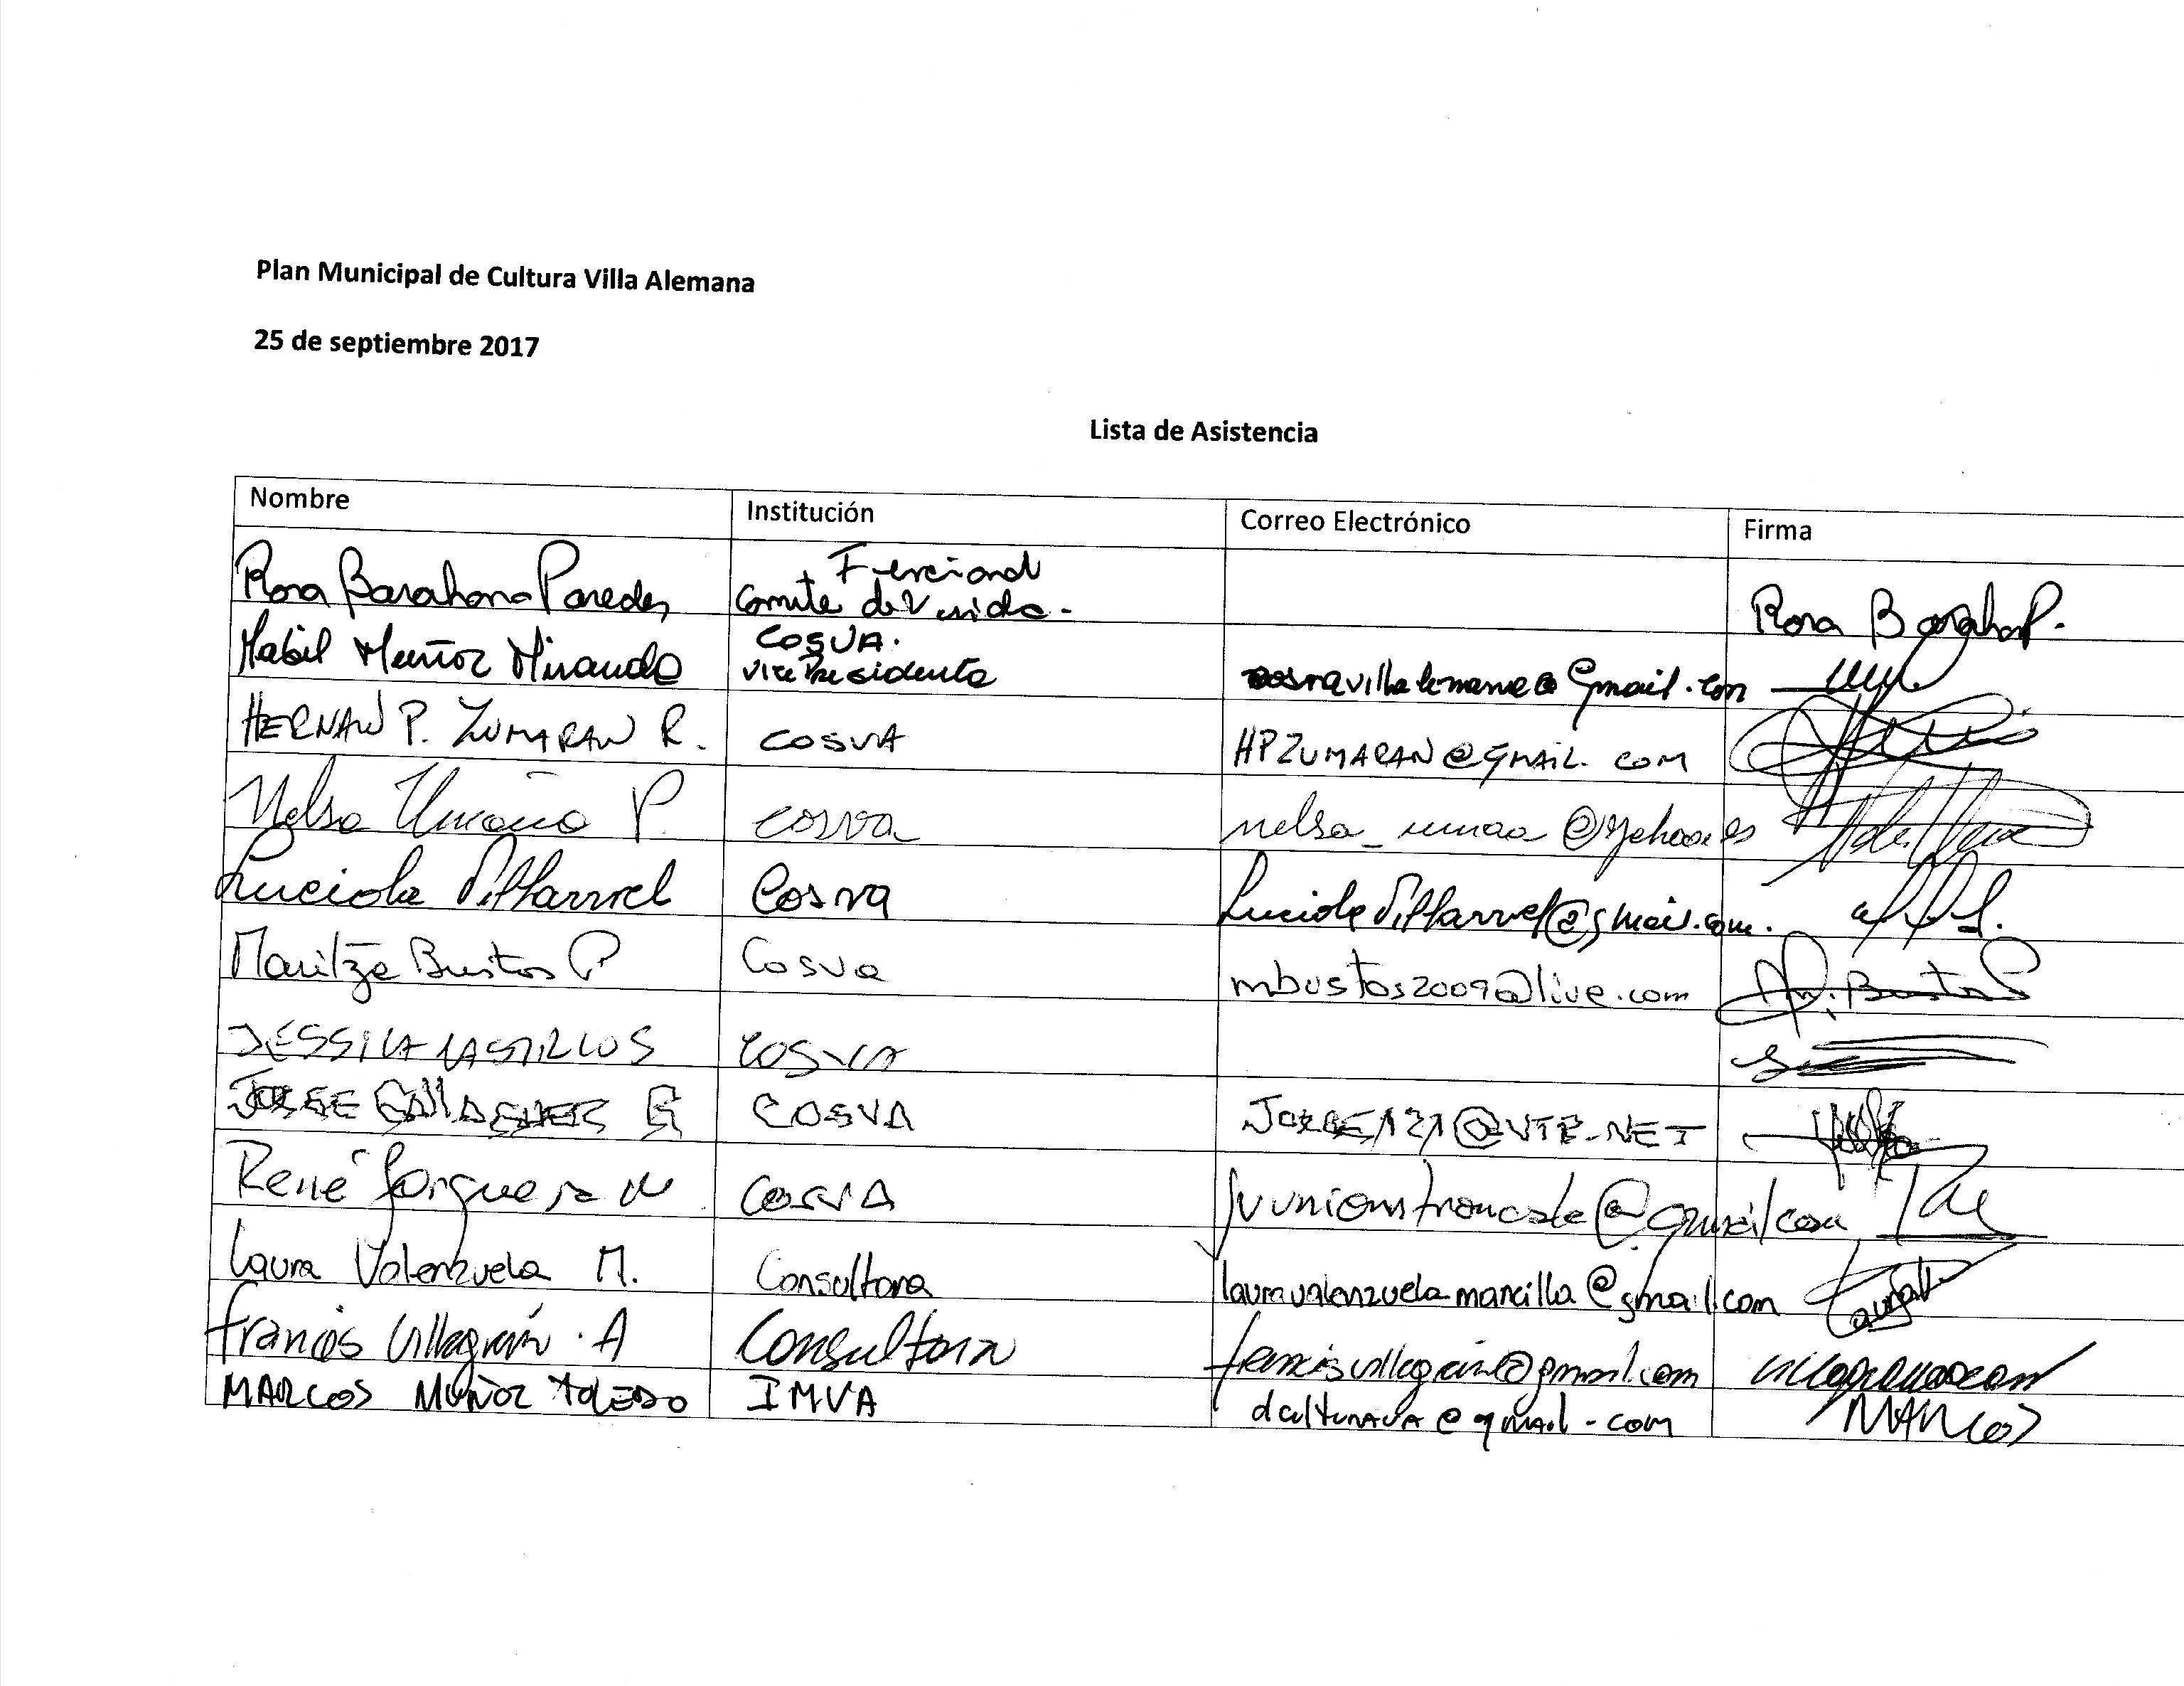 Plan Municipal de Cultura Villa Alemana
25 de septiembre 2017
Lista de Asistencia
Nombre Institución Correo Electrónico Firma
Rosa Barahona Paredes Comite de Rosa Barahona P.
Mabil Muñoz Miranda COSVA. Vice Presidenta @gmail.com
HERNAN P. ZUMARAN R. COSVA HPZUMARAN@GMAIL.COM
Nelsa Umaña P. cosva
Luciola Villarroel Cosva luciolavillarroel@gmail.com.
Maritza Bustos P Cosva mbustos2009@live.com M. Bustos P
JESSICA CASTILLOS COSVA
JORGE GALLAGUER G COSVA JORGE121@VTR.NET
René COSVA
Laura Valenzuela M. Consultora lauravalenzuelamancilla@gmail.com
Francis Villagrán A Consultora francisvillagran@gmail.com
MARCOS MUÑOZ TOLEDO IMVA dculturava@gmail.com MARCOS